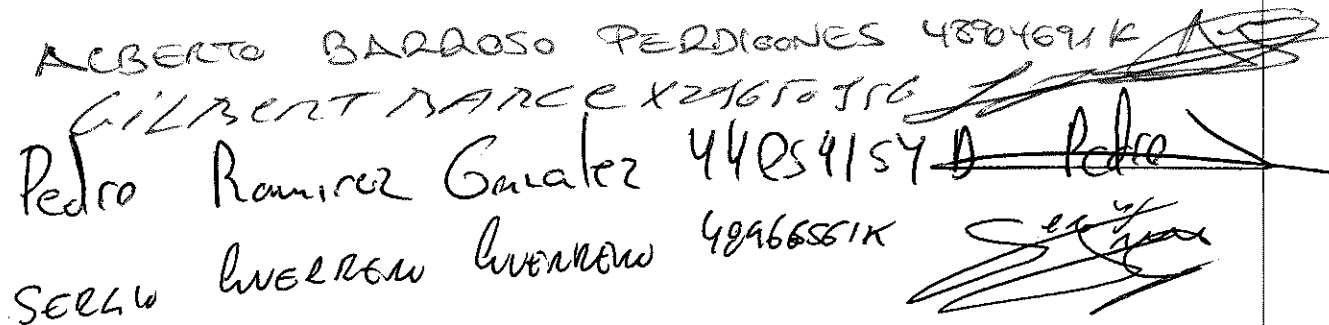 ALBERTO BARROSO PERDIGONES 48904691K
GILBERT MARC
Pedro Ramirez Gonzalez Pedro
SERGIO GUERRERO GUERRERO 48966561K